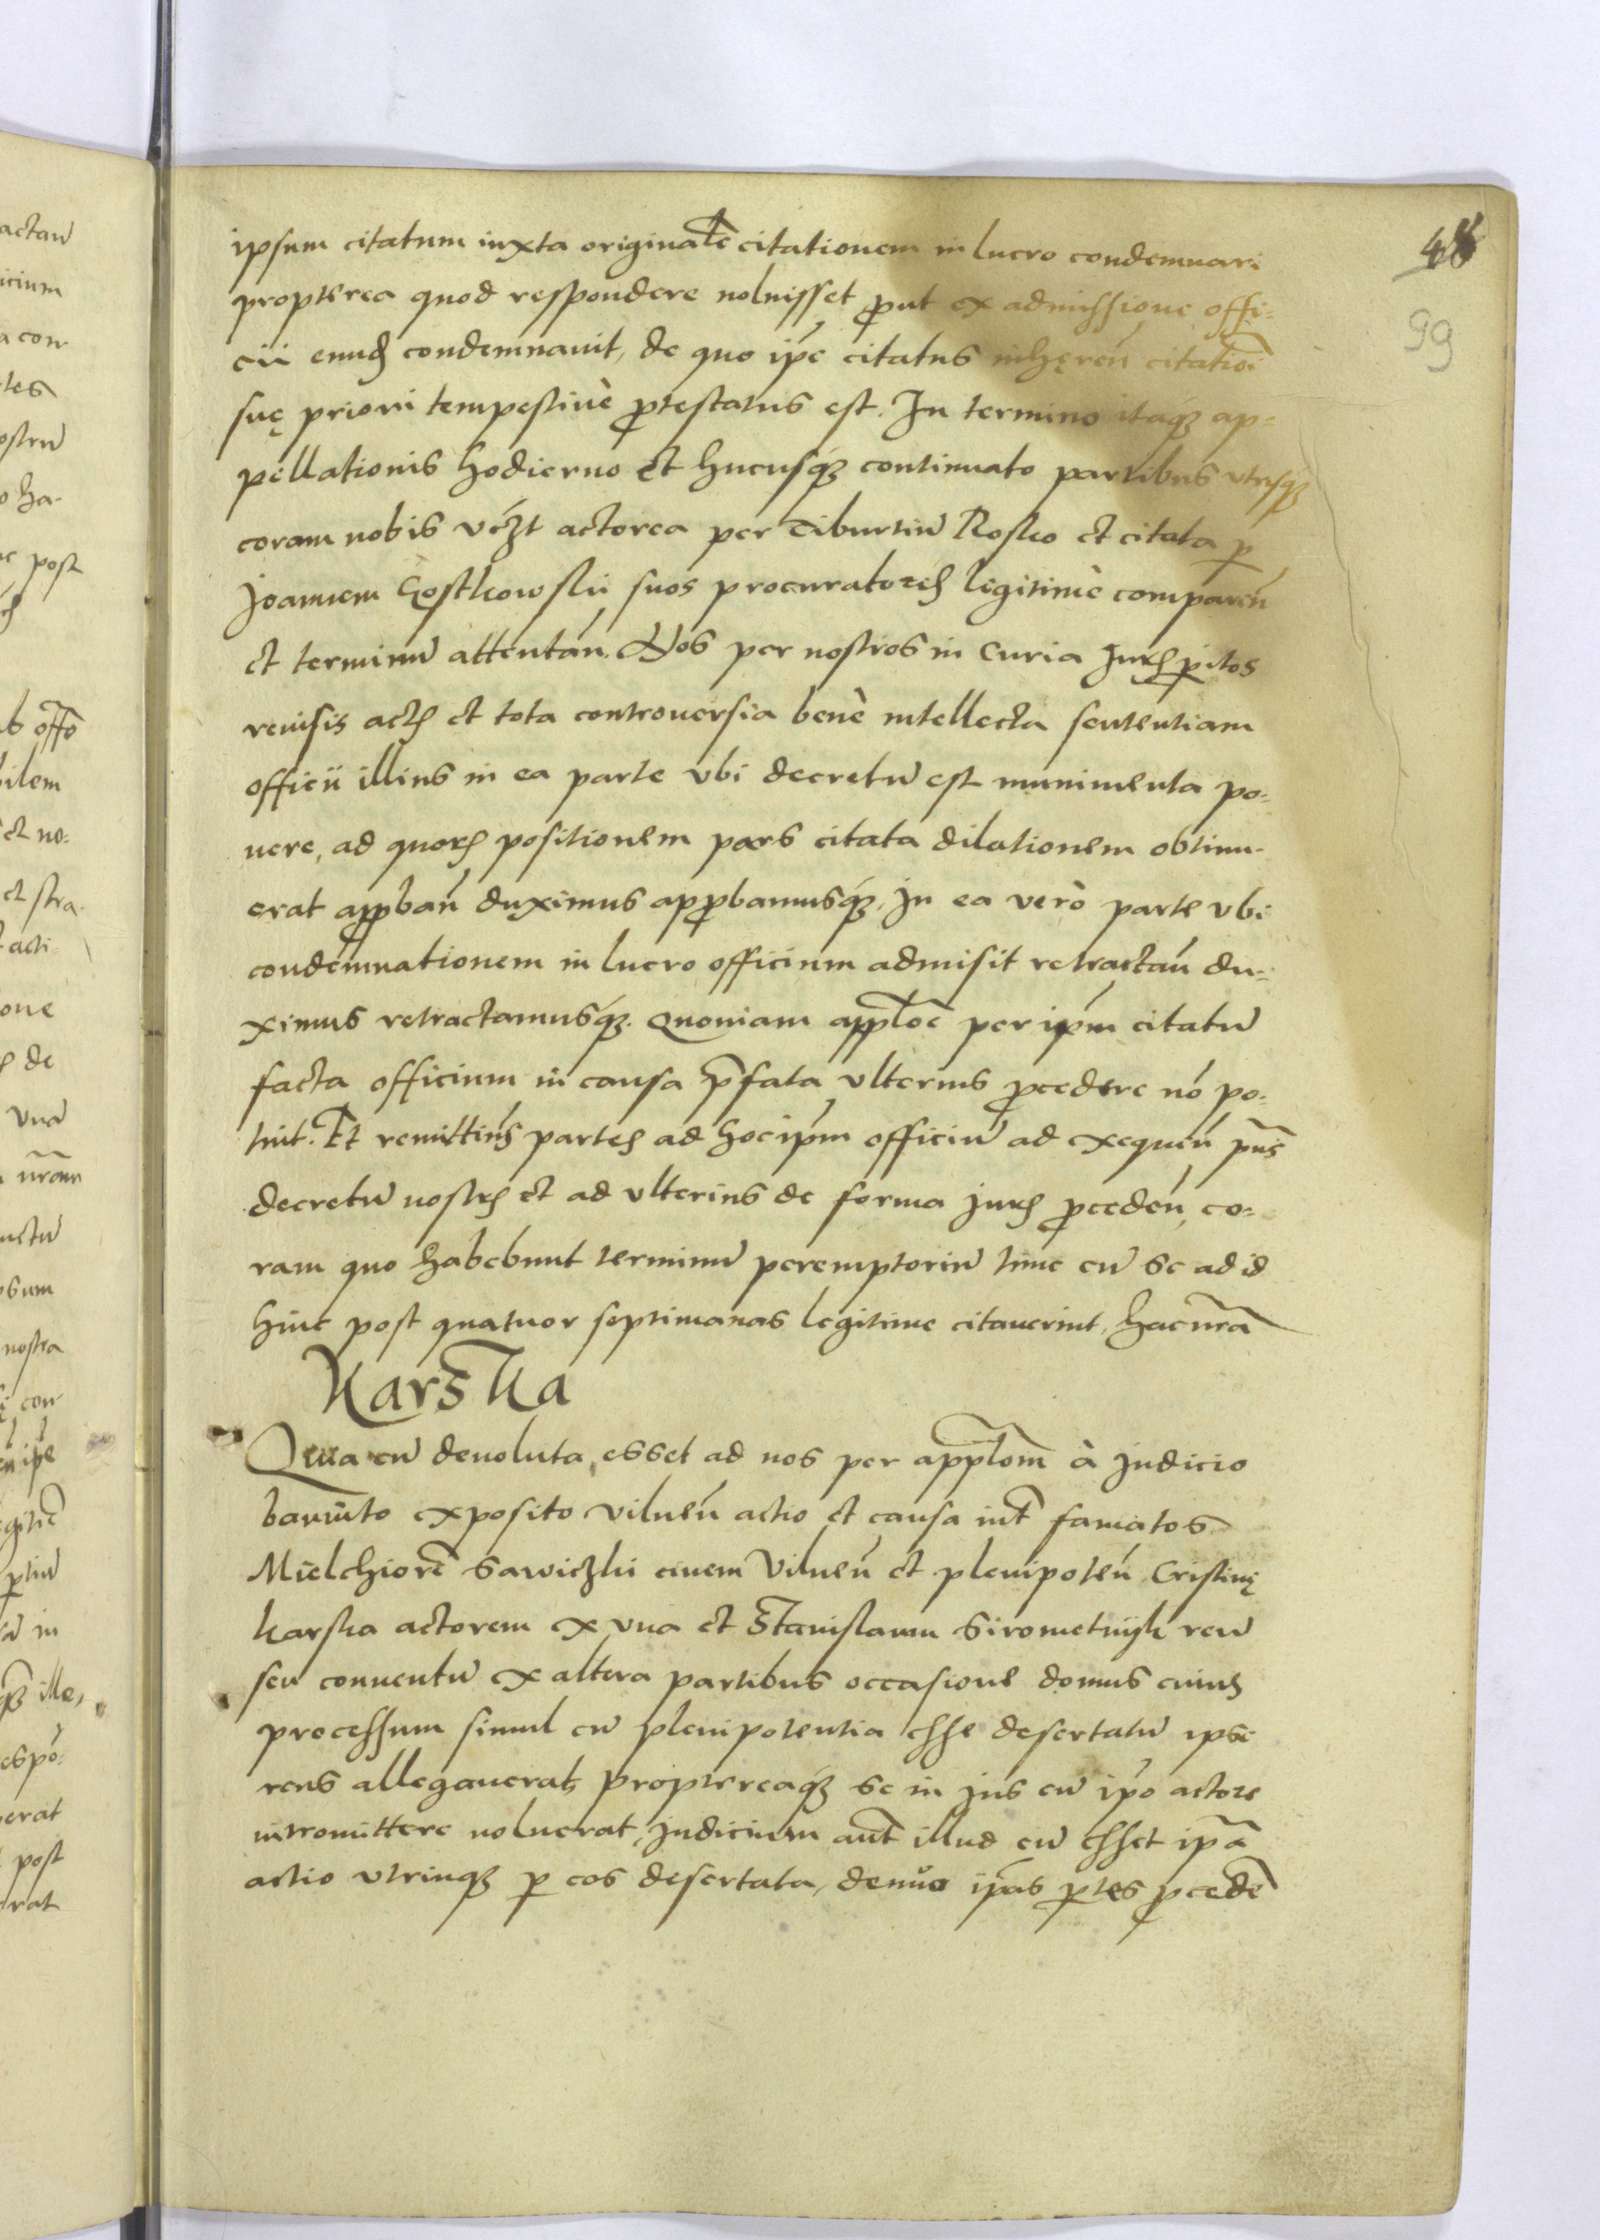 ipsum citatum iuxta originale citationem in lucro condemnari
propterea quod respondere noluisset put ex admissione offi-
cii eund condemnauit, de quo ipe citatus inhęren citatioi
suę priori tempestiuè ptestatus est. In termino itaq ap-
pellationis hodierno et hucusq continuato partibus vtrisq
coram nobis vczt actorea per Tiburtiu Rosko et citata p
Joannem Gostkowski suos procuratores legitimè comparen
et terminu attentan. Nos per nostros in Curia Juris pitos
reuisis actis et tota controuersia benè intellecta sententiam
officii illius in ea parte vbi decretu est munimenta po-
nere, ad quoru positionem pars citata dilationem obtinu-
erat appban duximus appbamusq, In ea verò parte vbi
condemnationem in lucro officium admisit retractan du-
ximus retractamusq. Quoniam apploe per ipm citatu
facta officium in causa pfata vlterius pcedere no po-
tuit. Et remittims partes ad hoc ipm officiu ad exequen pns
decretu nostru et ad vlterius de forma Juris pceden, co-
ram quo habebunt terminu peremptoriu tunc cu se ad id
hinc post quatuor septimanas legitime citauerint, hac nra
Karska
Qua cu deuoluta esset ad nos per applom à Judicio
bannito exposito Vilnen actio et causa int famatos
Melchiore Sawiczki ciuem Vilnen et plenipoten Cristinę
Karska actorem ex vna et Stanislaum Sirometnijk reu
seu conuentu ex altera partibus occasione domus cuius
processum simul cu plenipotentia esse desertatu ipse
reus allegauerat, propterecaq se in ius cu ipo actore
intromittere noluerat, Judicium aut illud cu esset ipa
actio vtrinq p eos desertata, denuo ipas ptes pcede
99